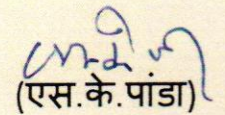 (एस.के.पांडा)